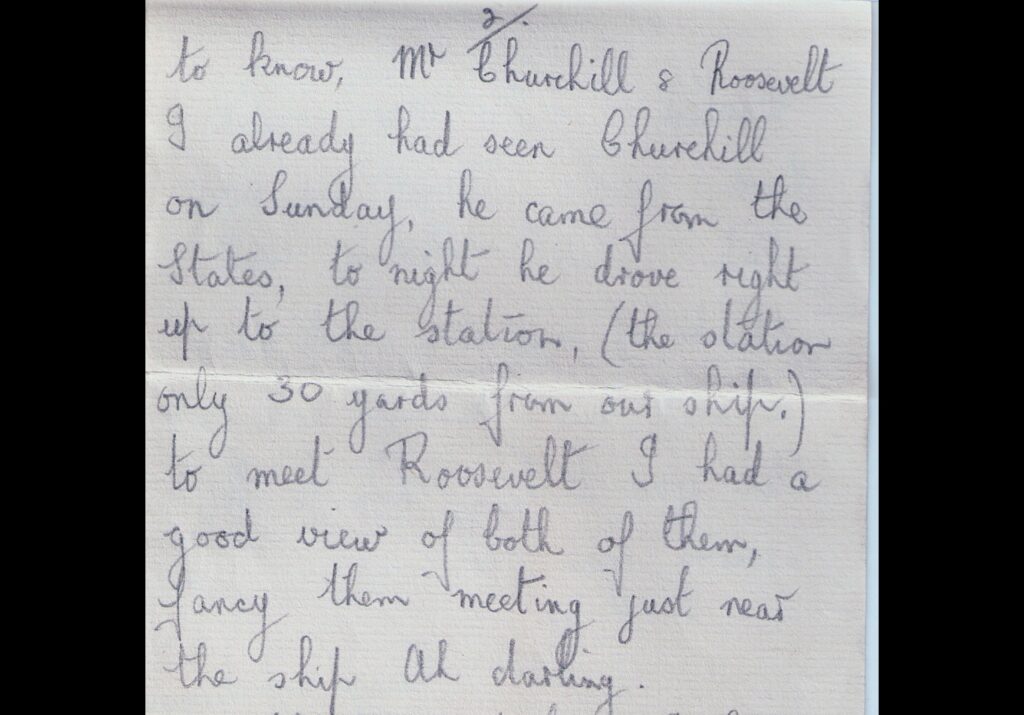 2.
to know, Mr Churchill & Roosevelt
I already had seen Churchill
on Sunday, he came from the
States, to night he drove right
up to the station, (the station
only 30 yards from our ship.)
to meet Roosevelt I had a
good view of both of them,
fancy them meeting just near
the ship Ah darling.